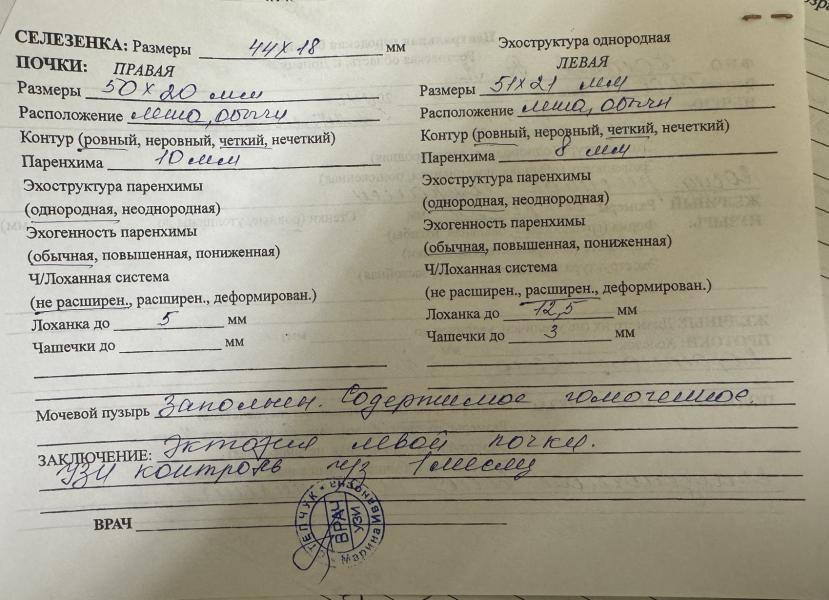 СЕЛЕЗЕНКА: Размеры 44х18 мм Эхоструктура однородная
ПОЧКИ: ПРАВАЯ ЛЕВАЯ
Размеры 50 х 20 мм Размеры 51х21 мм
Расположение обычн Расположение обычн
Контур (ровный, неровный, четкий, нечеткий) Контур (ровный, неровный, четкий, нечеткий)
Паренхима 10 мм Паренхима 8 мм
Эхоструктура паренхимы Эхоструктура паренхимы
(однородная, неоднородная) (однородная, неоднородная)
Эхогенность паренхимы Эхогенность паренхимы
(обычная, повышенная, пониженная) (обычная, повышенная, пониженная)
Ч/Лоханная система Ч/Лоханная система
(не расширен., расширен., деформирован.) (не расширен., расширен., деформирован.)
Лоханка до 5 мм Лоханка до 12,5 мм
Чашечки до мм Чашечки до 3 мм
Мочевой пузырь Заполнен. Содержимое гомогенное.
ЗАКЛЮЧЕНИЕ: левой почки.
УЗИ контроль ч/з 1 месяц
ВРАЧ
ВРАЧ
УЗИ
Марина Ивановна